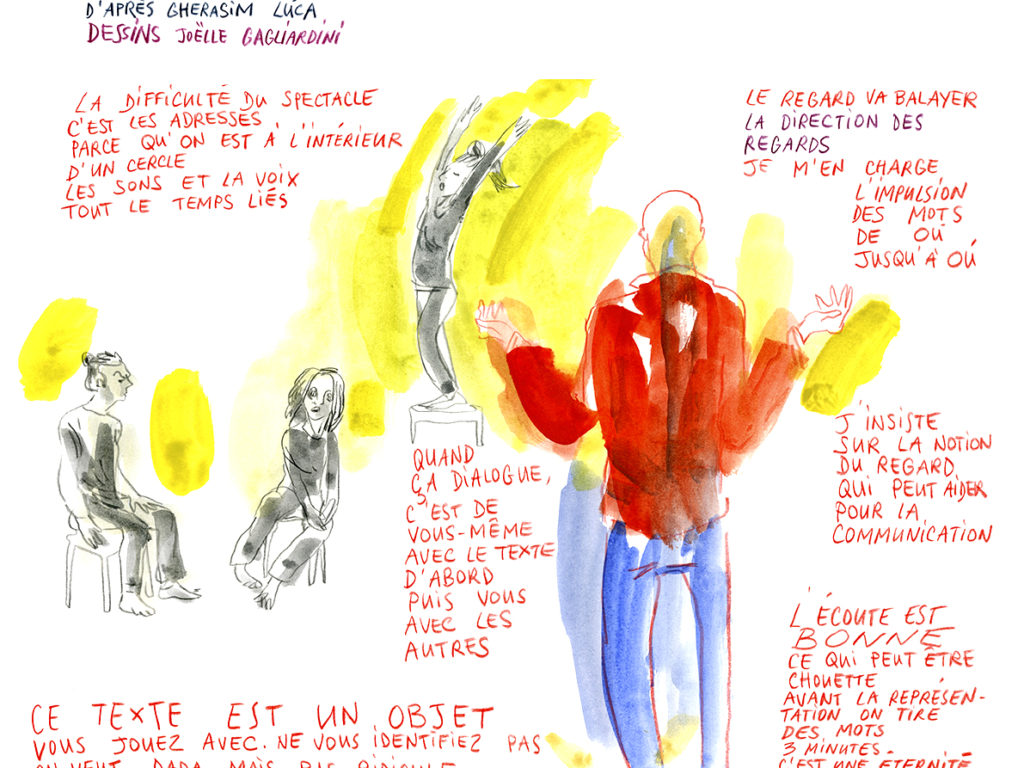 D'APRÈS GHERASIM LUCA
DESSINS JOËLLE GAGLIARDINI
LA DIFFICULTÉ DU SPECTACLE
C'EST LES ADRESSES
PARCE QU'ON EST À L'INTÉRIEUR
D'UN CERCLE
LES SONS ET LA VOIX
TOUT LE TEMPS LIÉS
LE REGARD VA BALAYER
LA DIRECTION DES
REGARDS
JE M'EN CHARGE
L'IMPULSION
DES MOTS
DE OÙ
JUSQU'À OÙ
J'INSISTE
SUR LA NOTION
DU REGARD
QUI PEUT AIDER
POUR LA
COMMUNICATION
QUAND
ÇA DIALOGUE,
C'EST DE
VOUS-MÊME
AVEC LE TEXTE
D'ABORD
PUIS VOUS
AVEC LES
AUTRES
L'ÉCOUTE EST
BONNE
CE QUI PEUT ÊTRE
CHOUETTE
AVANT LA REPRÉSEN-
TATION ON TIRE
DES MOTS
3 MINUTES.
C'EST UNE ETERNITÉ
CE TEXTE EST UN OBJET
VOUS JOUEZ AVEC. NE VOUS IDENTIFIEZ PAS
ON VEUT DADA MAIS PAS RIDICULE